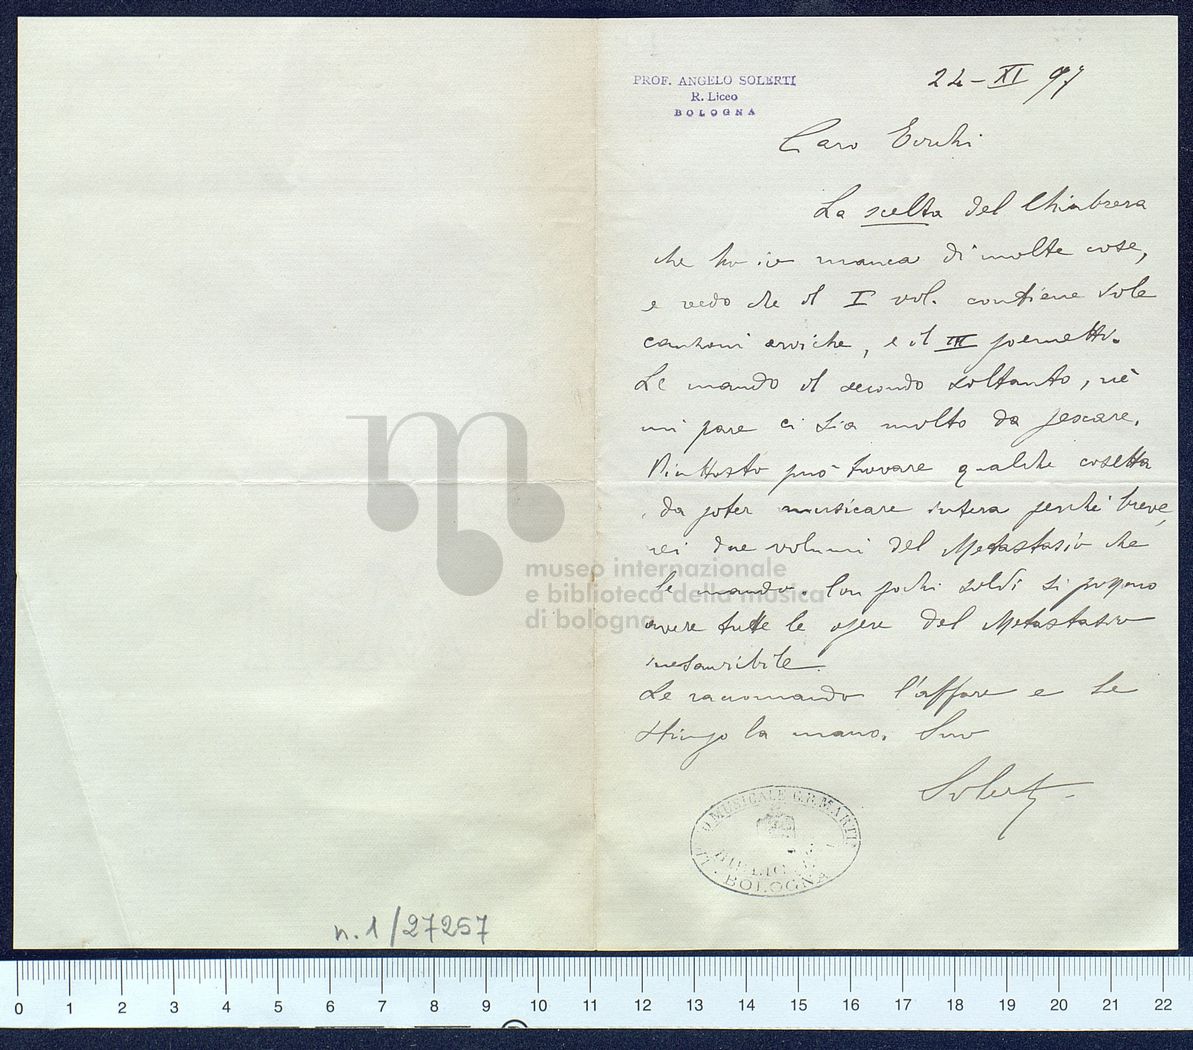 PROF. ANGELO SOLERTI
R. Liceo
BOLOGNA
22-XI 97
Caro Torchi
La scelta del Chiabrera
che ho io manca di molte cose,
e vedo che il I vol. contiene sole
canzoni eroiche, e il III poemetti.
Le mando il secondo soltanto, nè
mi pare ci sia molto da pescare.
Piuttosto può trovare qualche cosetta
da poter musicare intera perchè breve,
nei due volumi del Metastasio che
le mando. Con pochi soldi si possono
avere tutte le opere del Metastasio
inesauribile.
Le raccomando l'affare e Le
stringo la mano. Suo
Solerti
LICEO MUSICALE G.B. MARTINI
BIBLIOTECA
BOLOGNA
n. 1/27257
museo internazionale
e biblioteca della musica
di bologna
0 1 2 3 4 5 6 7 8 9 10 11 12 13 14 15 16 17 18 19 20 21 22